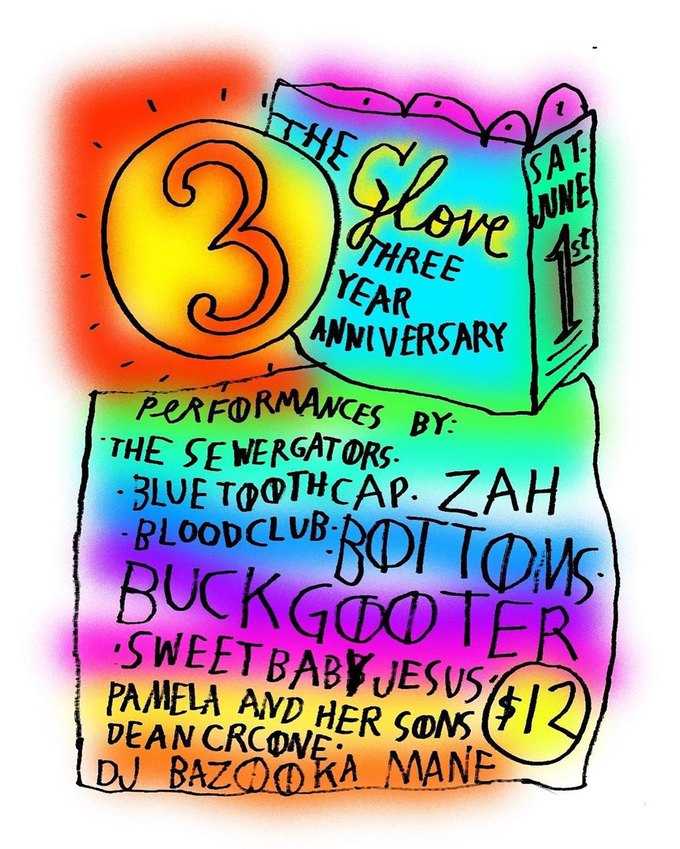 3
THE
Glove
THREE
YEAR
ANNIVERSARY
SAT.
JUNE
1st
PERFORMANCES BY:
·THE SEWERGATORS·
·BLUE TOOTH CAP· ZAH
·BLOODCLUB· BOTTOMS·
BUCK GOOTER
·SWEET BABY JESUS·
PAMELA AND HER SONS
DEAN CRCONE·
$12
DJ BAZOOKA MANE